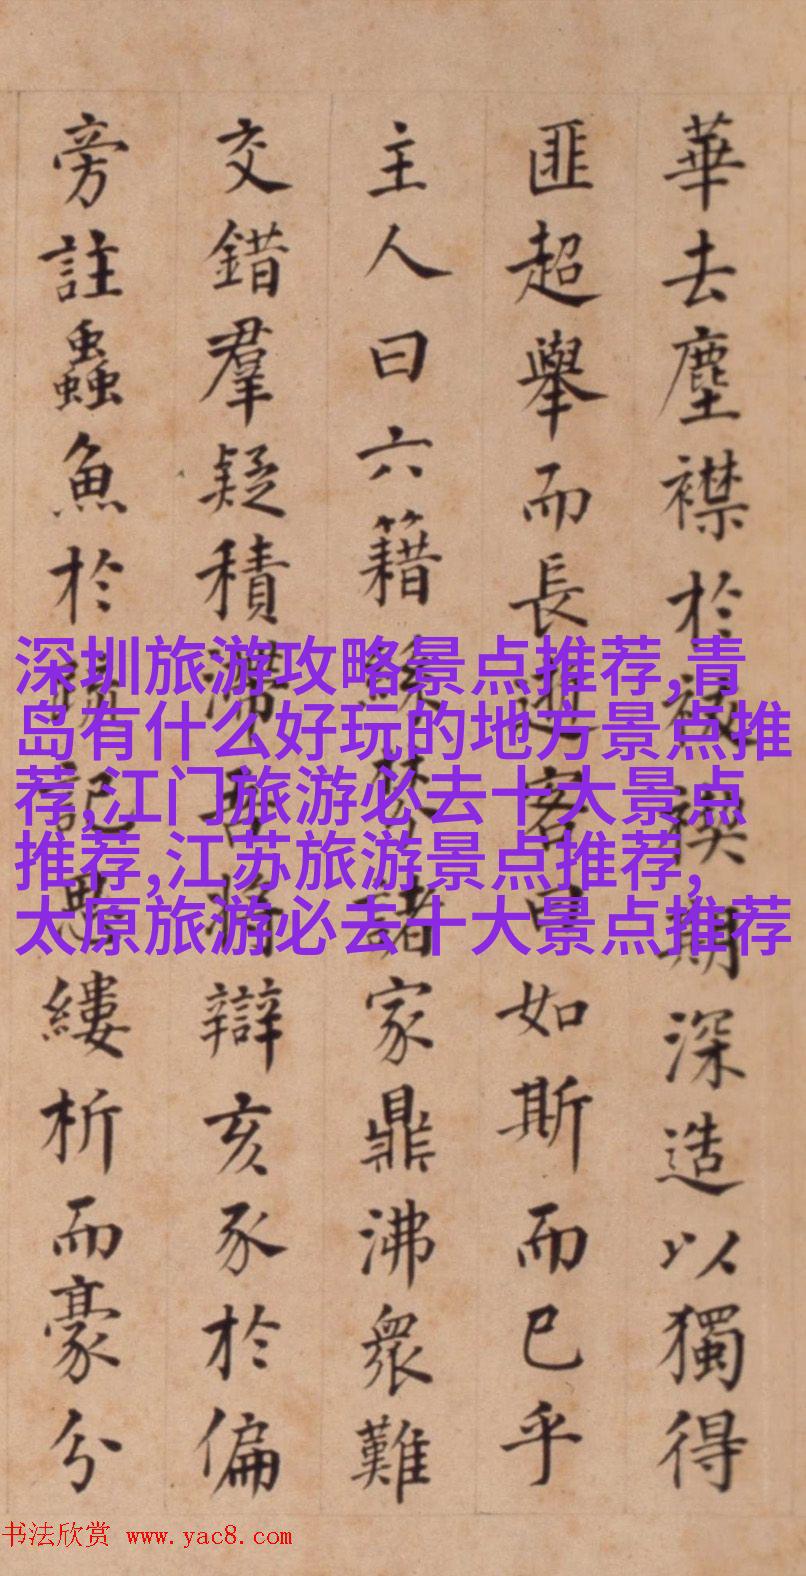 華去塵襟於期深造以獨得
匪超舉而長逝客曰如斯而已乎
主人曰六籍絲棼諸家鼎沸衆難
交錯羣疑積滯吾將辯亥豕於偏
旁註蟲魚於疏記思縷析而豪分
深圳旅游攻略景点推荐,青
岛有什么好玩的地方景点推
荐,江门旅游必去十大景点
推荐,江苏旅游景点推荐,
太原旅游必去十大景点推荐
书法欣赏 www.yac8.com